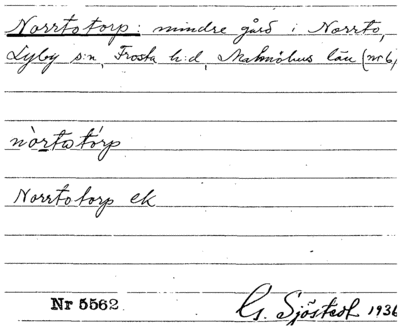 Norrtotorp: mindre gård i Norrto,
Lyby s:n, Frosta h:d, Malmöhus län (nr 6)
nòrtotórp
Norrtotorp ek
Nr 5562
G. Sjöstedt 1936